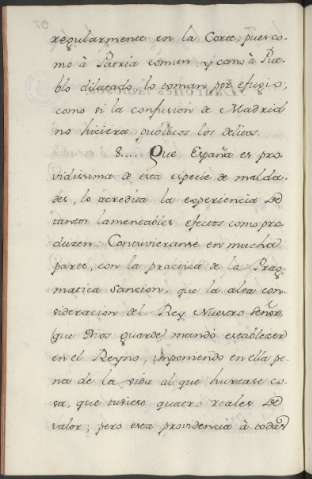 regularmente en la Corte pues co-
mo à Patria comun y como à Pue-
blo dilatado lo toman por efugio,
como si la confusion de Madrid
no hiciera publicos los delitos.
8.... Que España es pro-
vidissima de esta especie de malda-
des, lo acredita la experiencia de
tantos lamentables efectos como pro-
ducen. Contuvieranse en mucha
parte, con la practica de la Prag-
matica Sancion, que la alta con-
sideracion del Rey Nuestro Señor
(que Dios guarde) mandó establecer
en el Reyno, imponiendo en ella pe-
na de la vida al que hurtase co-
sa, que tubiese quatro reales de
valor; pero esta providencia à todas